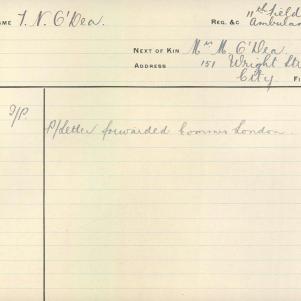 AME T. N. O'Dea REG. &c 11th Field
Ambulan
NEXT OF KIN Mrs M. O'Dea
ADDRESS 151 Wright Str
City FI
P/Letter forwarded Comms London.